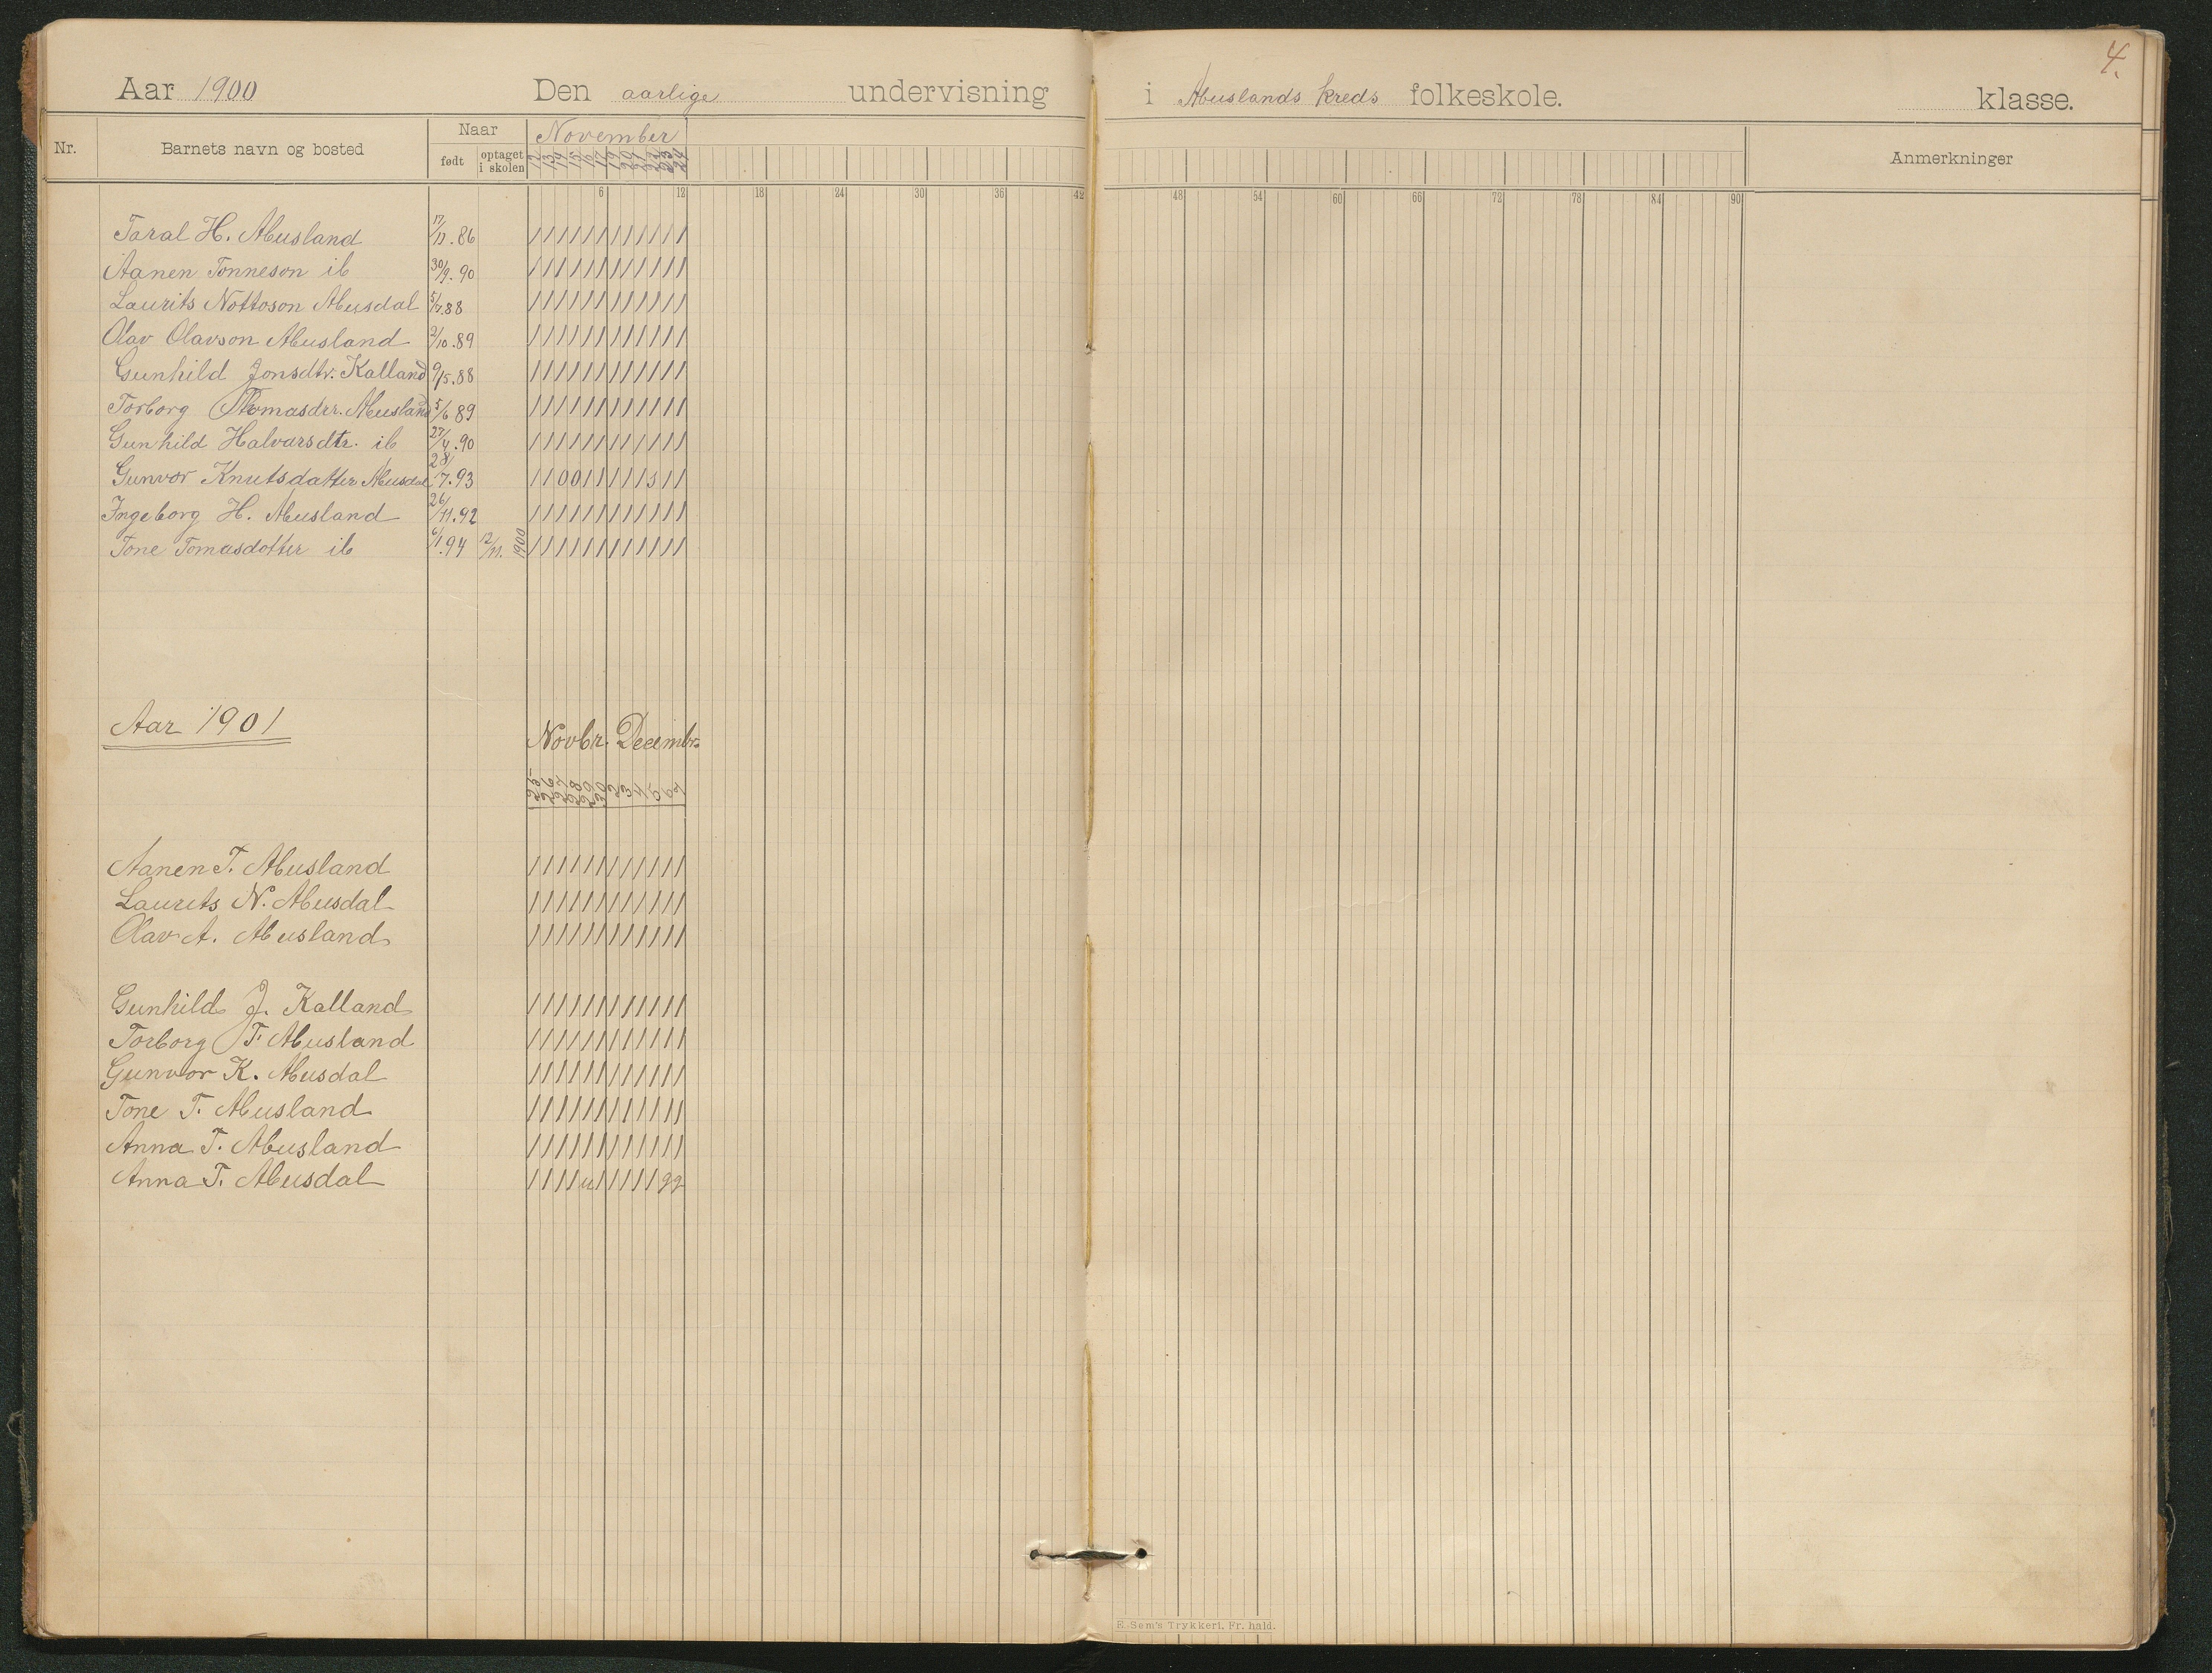 4.
Aar 1900 Den aarlige undervisning i Abuslands kreds folkeskole. klasse.
Nr. Barnets navn og bosted Naar født optaget i skolen November Anmerkninger
12 13 14 15 16 17 19 20 21 22 23 24
6 12 18 24 30 36 42 48 54 60 66 72 78 84 90
Taral H. Abusland 17/11.86 / / / / / / / / / / / /
Aanen Tonneson ib 30/9.90 / / / / / / / / / / / /
Laurits Nottoson Abusdal 5/7.88 / / / / / / / / / / / /
Olav Olavson Abusland 2/10.89 / / / / / / / / / / / /
Gunhild Jonsdtr. Kalland 9/5.88 / / / / / / / / / / / /
Torborg Thomasdtr. Abusland 5/6 89 / / / / / / / / / / / /
Gunhild Halvarsdtr. ib 27/4.90 / / / / / / / / / / / /
Gunvor Knutsdatter Abusdal 28/7.93 / / 0 0 / / / / / s / /
Ingeborg H. Abusland 26/11.92 / / / / / / / / / / / /
Tone Tomasdotter ib 6/1.94 12/11. 1900 / / / / / / / / / / / /
Aar 1901 Novbr. Decembr.
Aanen T. Abusland / / / / / / / / / / / /
Laurits N. Abusdal / / / / / / / / / / / /
Olav A. Abusland / / / / / / / / / / / /
Gunhild J. Kalland / / / / / / / / / / / /
Torborg T. Abusland / / / / / / / / / / / /
Gunvor K. Abusdal / / / / / / / / / / / /
Tone T. Abusland / / / / / / / / / / / /
Anna T. Abusland / / / / / / / / / / / /
Anna T. Abusdal / / / / u / / / / / g g
E. Sem's Trykkeri, Fr. hald.